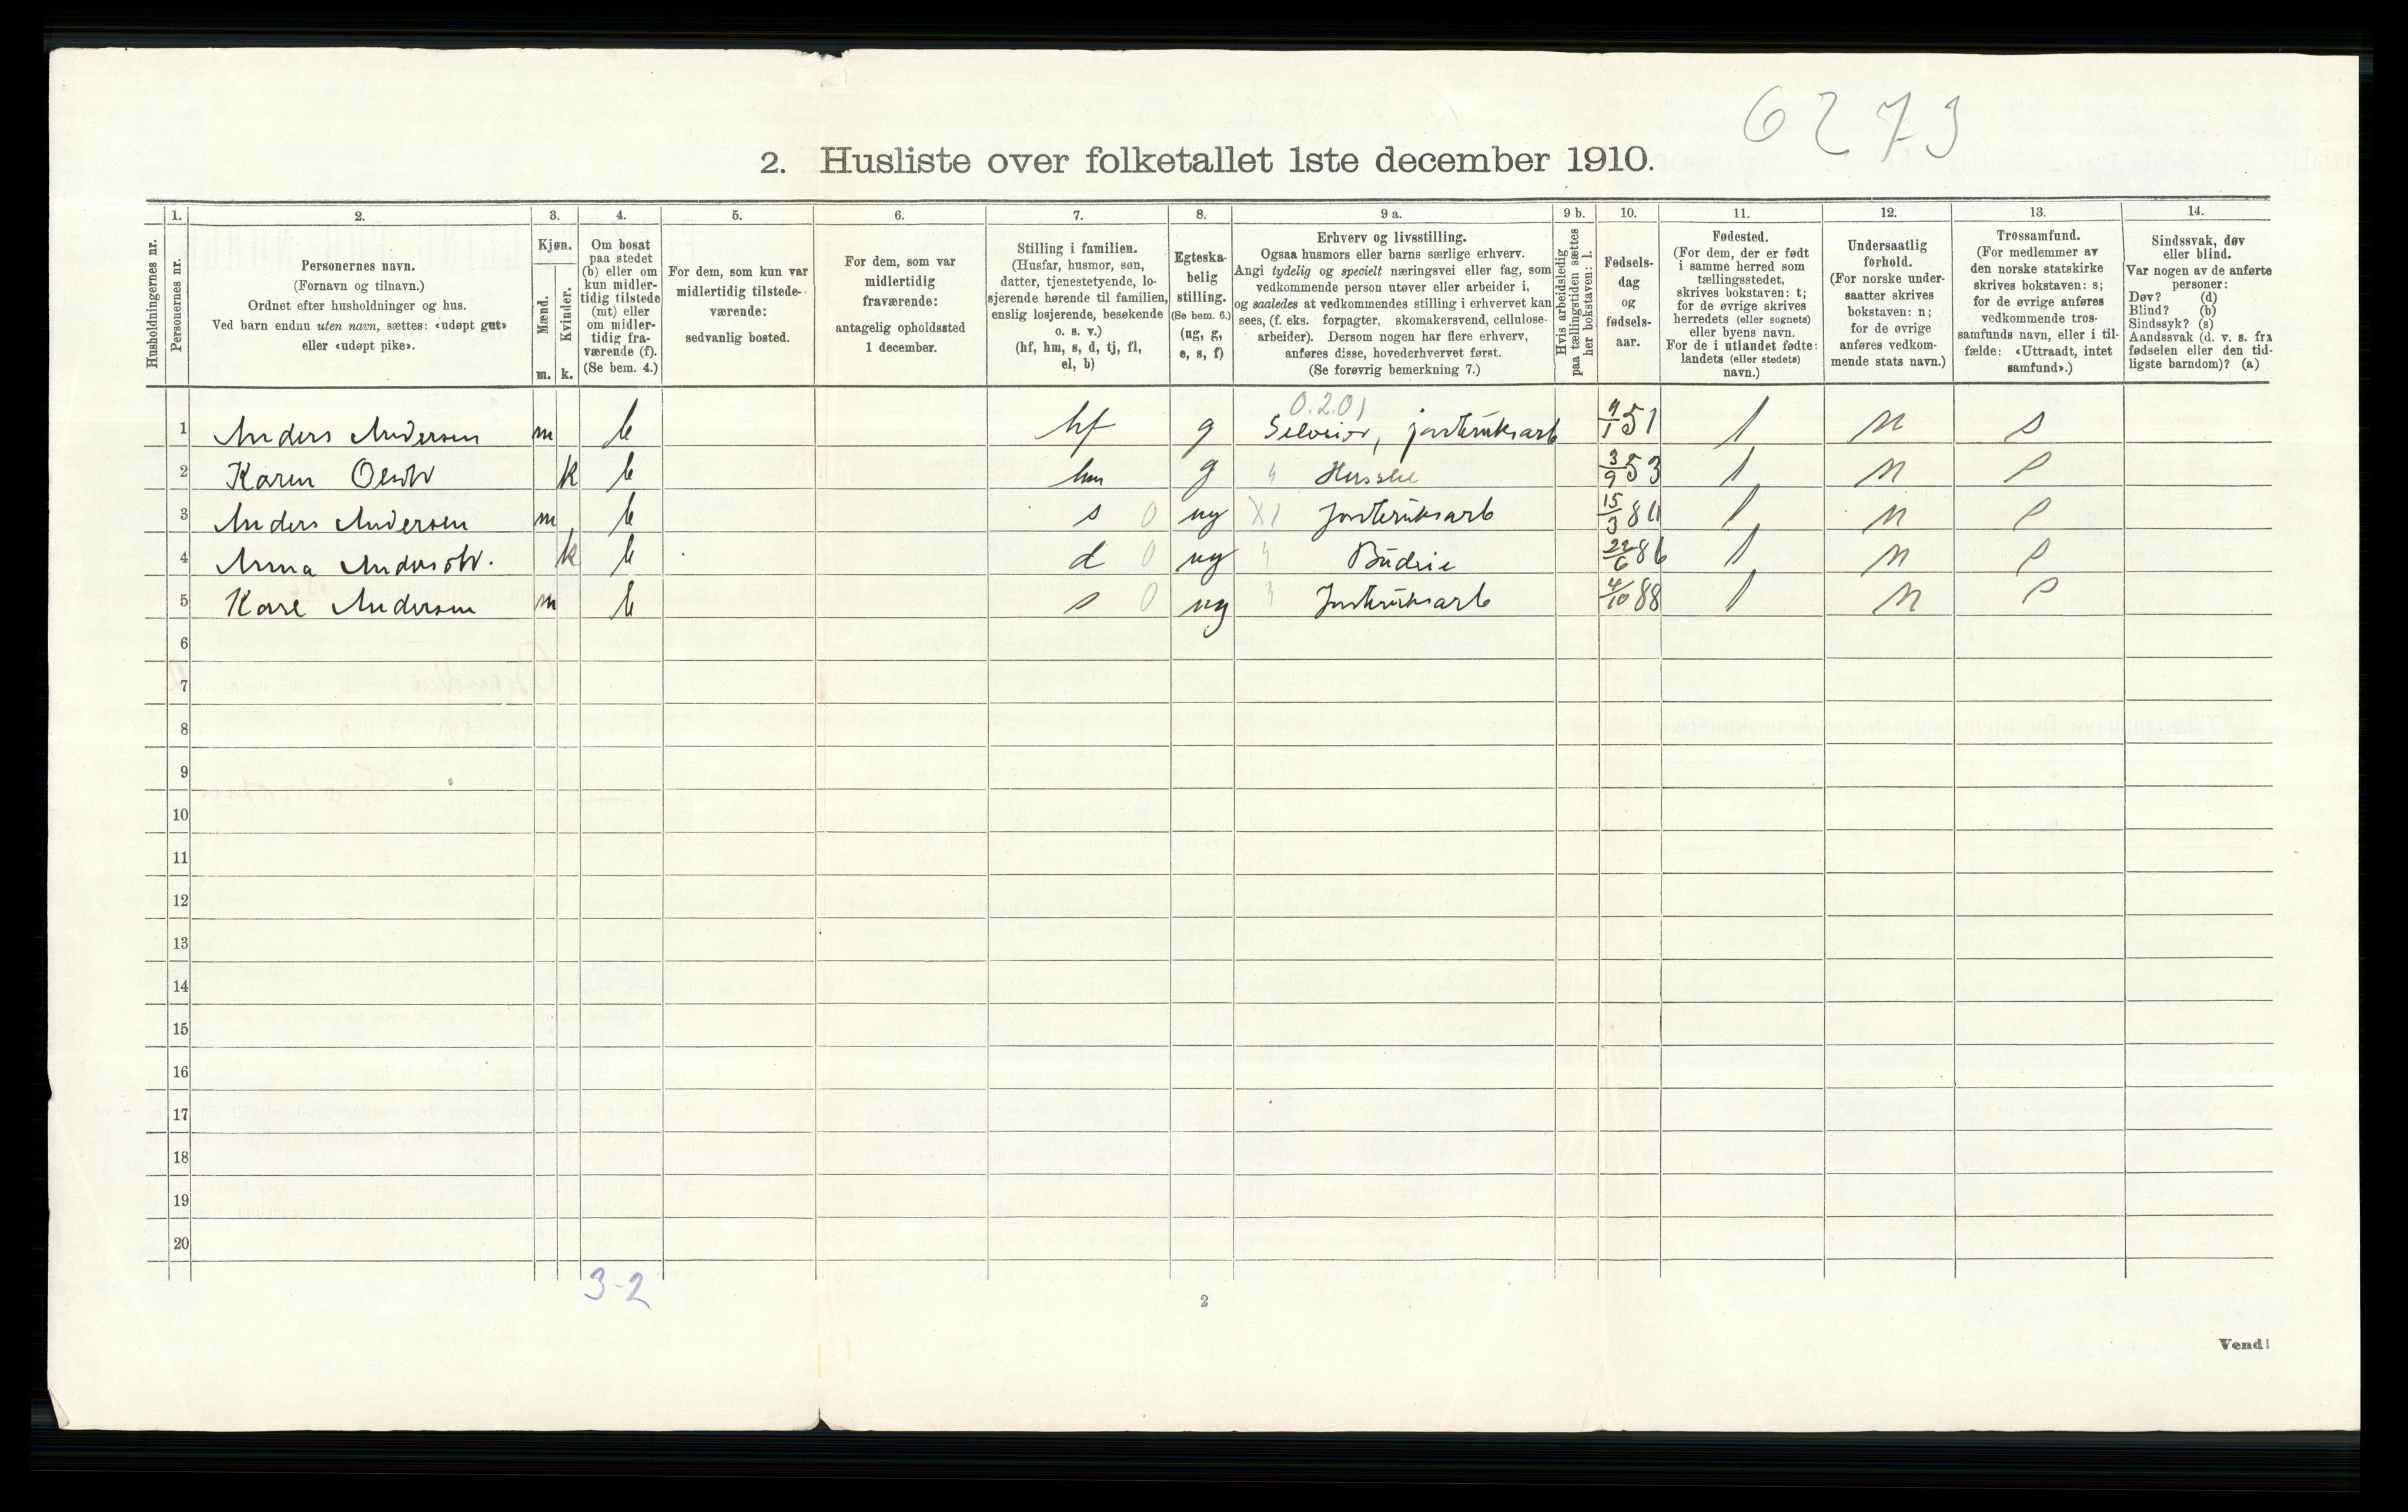 6273
2. Husliste over folketallet 1ste december 1910.
1. 2. 3. 4. 5. 6. 7. 8. 9 a. 9 b. 10. 11. 12. 13. 14.
Husholdningernes nr.
Personernes nr.
Personernes navn.
(Fornavn og tilnavn.)
Ordnet efter husholdninger og hus.
Ved barn endnu uten navn, sættes: «udøpt gut»
eller «udøpt pike».
Kjøn.
Mænd.
Kvinder.
m. k.
Om bosat
paa stedet
(b) eller om
kun midler-
tidig tilstede
(mt) eller
om midler-
tidig fra-
værende (f).
(Se bem. 4.)
For dem, som kun var
midlertidig tilstede-
værende:
sedvanlig bosted.
For dem, som var
midlertidig
fraværende:
antagelig opholdssted
1 december.
Stilling i familien.
(Husfar, husmor, søn,
datter, tjenestetyende, lo-
sjerende hørende til familien,
enslig losjerende, besøkende
o. s. v.)
(hf, hm, s, d, tj, fl,
el, b)
Egteska-
belig
stilling.
(Se bem. 6.)
(ug, g,
e, s, f)
Erhverv og livsstilling.
Ogsaa husmors eller barns særlige erhverv.
Angi tydelig og specielt næringsvei eller fag, som
vedkommende person utøver eller arbeider i,
og saaledes at vedkommendes stilling i erhvervet kan
sees, (f. eks. forpagter, skomakersvend, cellulose-
arbeider). Dersom nogen har flere erhverv,
anføres disse, hovederhvervet først.
(Se forøvrig bemerkning 7.)
Hvis arbeidsledig
paa tællingstiden sættes
her bokstaven: l.
Fødsels-
dag
og
fødsels-
aar.
Fødested.
(For dem, der er født
i samme herred som
tællingsstedet,
skrives bokstaven: t;
for de øvrige skrives
herredets (eller sognets)
eller byens navn.
For de i utlandet fødte:
landets (eller stedets)
navn.)
Undersaatlig
forhold.
(For norske under-
saatter skrives
bokstaven: n;
for de øvrige
anføres vedkom-
mende stats navn.)
Trossamfund.
(For medlemmer av
den norske statskirke
skrives bokstaven: s;
for de øvrige anføres
vedkommende tros-
samfunds navn, eller i til-
fælde: «Uttraadt, intet
samfund».)
Sindssvak, døv
eller blind.
Var nogen av de anførte
personer:
Døv? (d)
Blind? (b)
Sindssyk? (s)
Aandssvak (d. v. s. fra
fødselen eller den tid-
ligste barndom)? (a)
0.2.01
1 Anders Andersen m b hf g Selveier, jordbruksarb 51 t n s
2 Karen Olsdtr k b hm g " Husstel 3/9 53 t n s
3 Anders Andersen m b s 0 ug X1 Jordbruksarb 15/3 84 t n s
4 Anna Andersdtr. k b d 0 ug " Budeie 22/6 86 t n s
5 Kare Andersen m b s 0 ug " Jordbruksarb 4/10 88 t n s
6
7
8
9
10
11
12
13
14
15
16
17
18
19
20
3-2
2
Vend!